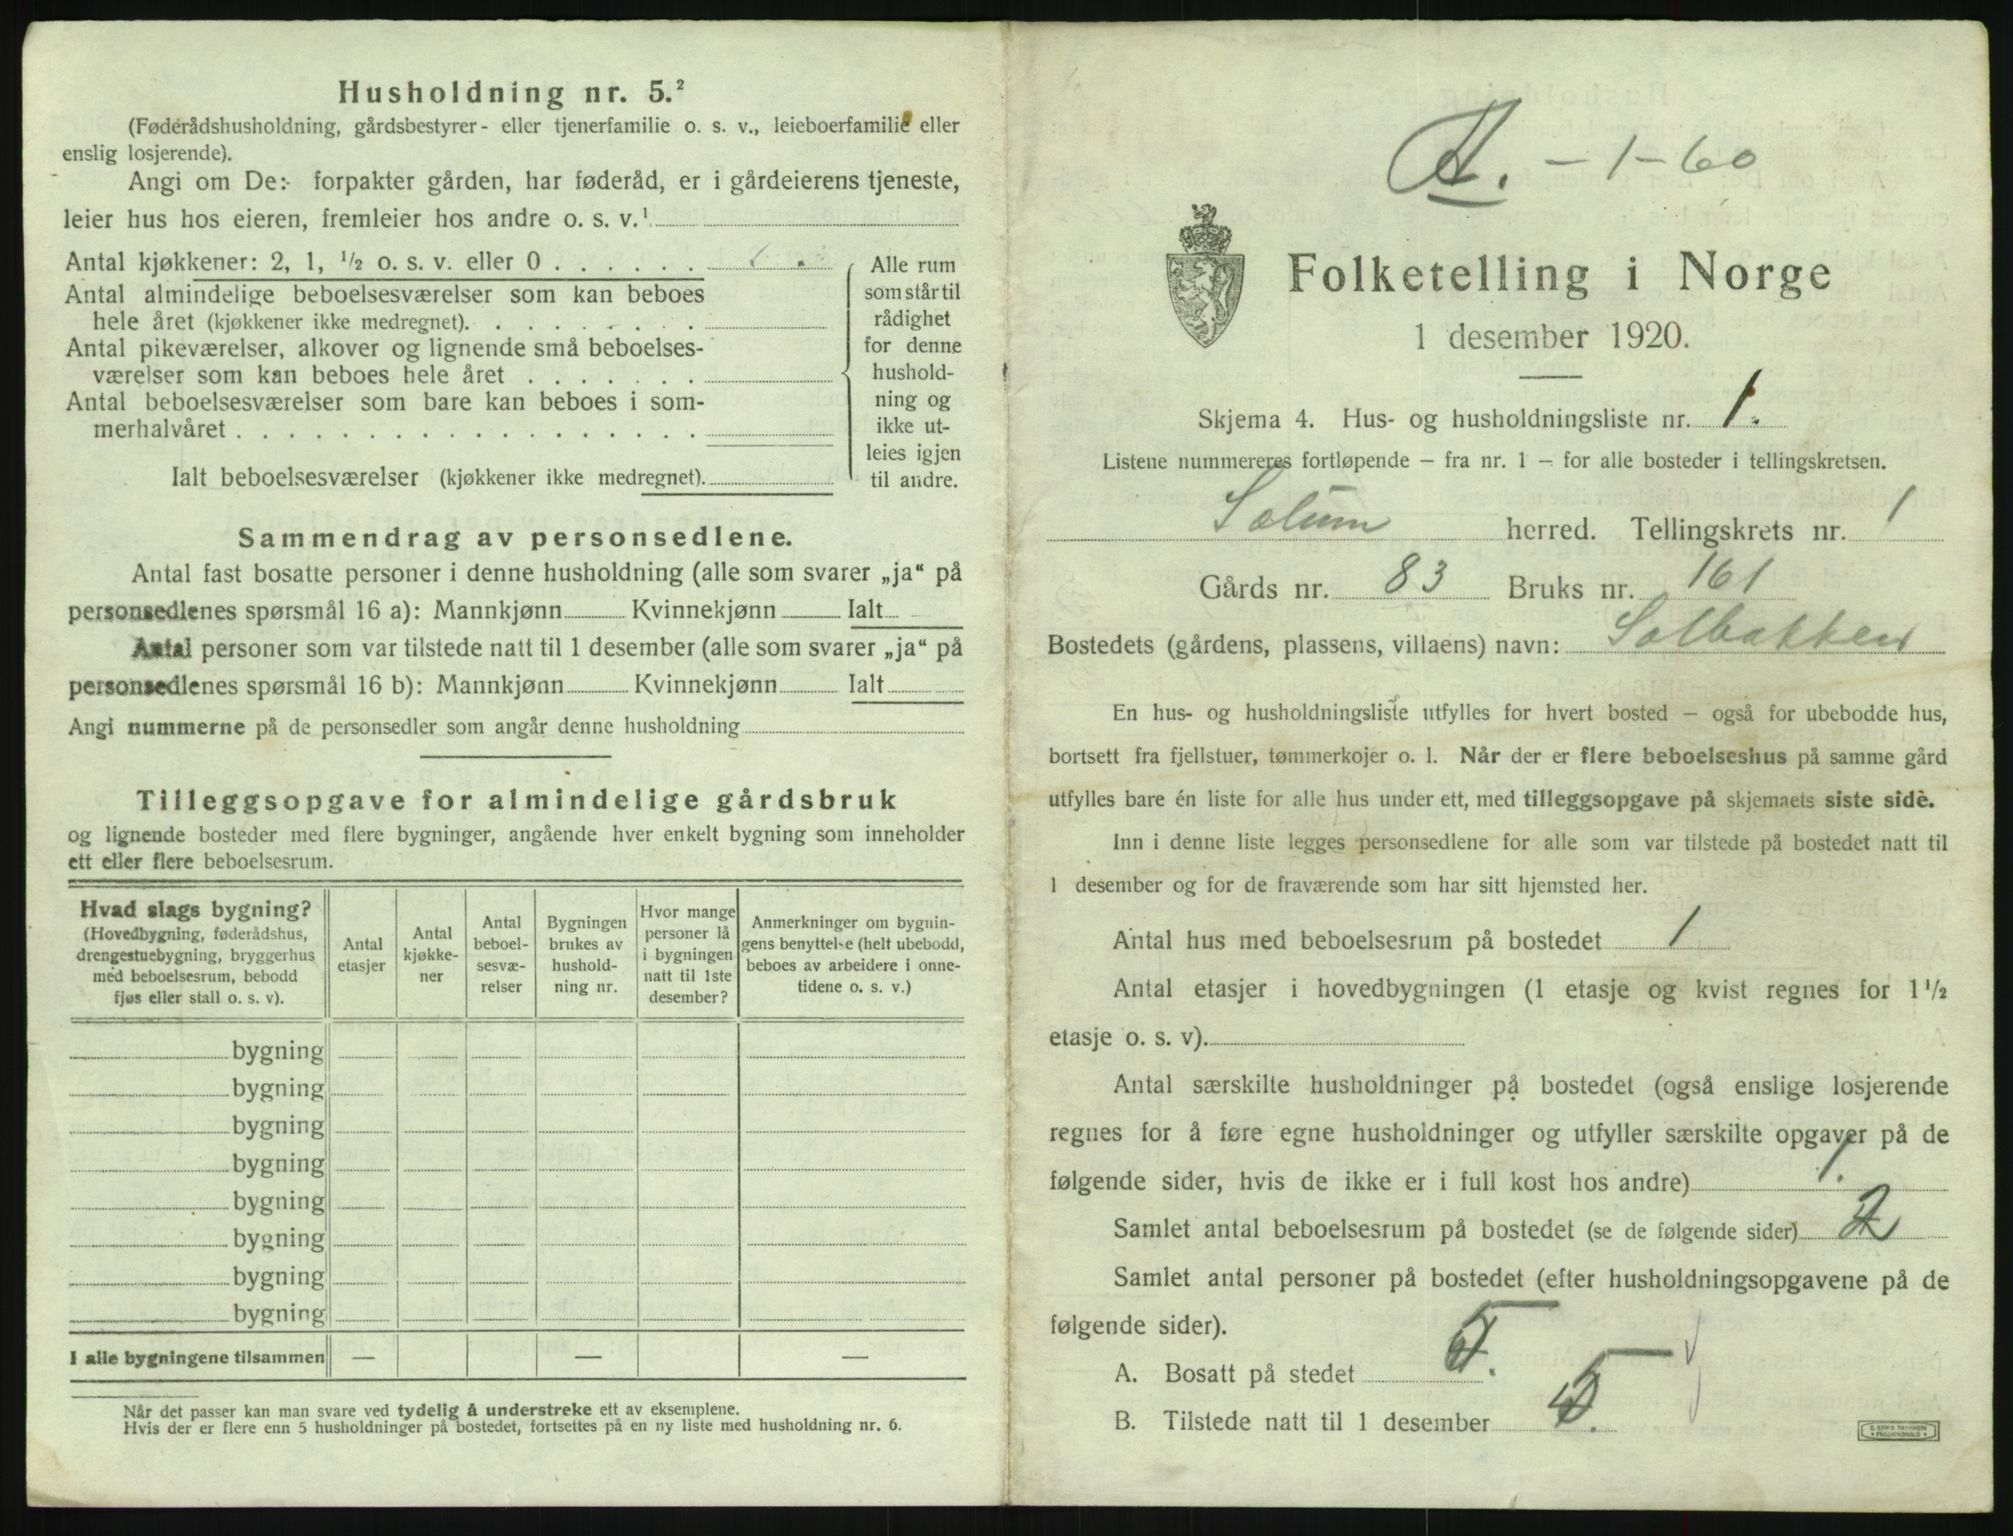 Husholdning nr. 5.²
(Føderådshusholdning, gårdsbestyrer- eller tjenerfamilie o. s. v., leieboerfamilie eller
enslig losjerende).
Angi om De:- forpakter gården, har føderåd, er i gårdeierens tjeneste,
leier hus hos eieren, fremleier hos andre o. s. v.¹
Antal kjøkkener: 2, 1, ½ o. s. v. eller 0 . . . . . .
Antal almindelige beboelsesværelser som kan beboes
hele året (kjøkkener ikke medregnet). . . . . . . . .
Antal pikeværelser, alkover og lignende små beboelses-
værelser som kan beboes hele året . . . . . . .
Antal beboelsesværelser som bare kan beboes i som-
merhalvåret . . . . . . . . . . . . . . . . . .
Ialt beboelsesværelser (kjøkkener ikke medregnet).
Alle rum
som står til
rådighet
for denne
hushold-
ning og
ikke ut-
leies igjen
til andre.
Sammendrag av personsedlene.
Antal fast bosatte personer i denne husholdning (alle som svarer „ja“ på
personsedlenes spørsmål 16 a): Mannkjønn Kvinnekjønn Ialt
Antal personer som var tilstede natt til 1 desember (alle som svarer „ja“ på
personsedlenes spørsmål 16 b): Mannkjønn Kvinnekjønn Ialt
Angi nummerne på de personsedler som angår denne husholdning
Tilleggsopgave for almindelige gårdsbruk
og lignende bosteder med flere bygninger, angående hver enkelt bygning som inneholder
ett eller flere beboelsesrum.
Hvad slags bygning?
(Hovedbygning, føderådshus,
drengestuebygning, bryggerhus
med beboelsesrum, bebodd
fjøs eller stall o. s. v).
Antal
etasjer
Antal
kjøkke-
ner
Antal
beboel-
sesvæ-
relser
Bygningen
brukes av
hushold-
ning nr.
Hvor mange
personer lå
i bygningen
natt til 1ste
desember?
Anmerkninger om bygnin-
gens benyttelse (helt ubebodd,
beboes av arbeidere i onne-
tidene o. s. v.)
bygning
bygning
bygning
bygning
bygning
bygning
bygning
bygning
I alle bygningene tilsammen — — —
Når det passer kan man svare ved tydelig å understreke ett av eksemplene.
Hvis der er flere enn 5 husholdninger på bostedet, fortsettes på en ny liste med husholdning nr. 6.
A. – 1 – 60
Folketelling i Norge
1 desember 1920.
Skjema 4. Hus- og husholdningsliste nr. 1.
Listene nummereres fortløpende – fra nr. 1 – for alle bosteder i tellingskretsen.
Solum herred. Tellingskrets nr. 1
Gårds nr. 83 Bruks nr. 161
Bostedets (gårdens, plassens, villaens) navn: Solbakken
En hus- og husholdningsliste utfylles for hvert bosted – også for ubebodde hus,
bortsett fra fjellstuer, tømmerkojer o. l. Når der er flere beboelseshus på samme gård
utfylles bare én liste for alle hus under ett, med tilleggsopgave på skjemaets siste side.
Inn i denne liste legges personsedlene for alle som var tilstede på bostedet natt til
1 desember og for de fraværende som har sitt hjemsted her.
Antal hus med beboelsesrum på bostedet 1
Antal etasjer i hovedbygningen (1 etasje og kvist regnes for 1½
etasje o. s. v).
Antal særskilte husholdninger på bostedet (også enslige losjerende
regnes for å føre egne husholdninger og utfyller særskilte opgaver på de
følgende sider, hvis de ikke er i full kost hos andre) 1.
Samlet antal beboelsesrum på bostedet (se de følgende sider) 2
Samlet antal personer på bostedet (efter husholdningsopgavene på de
følgende sider).
A. Bosatt på stedet 5.
B. Tilstede natt til 1 desember 5.